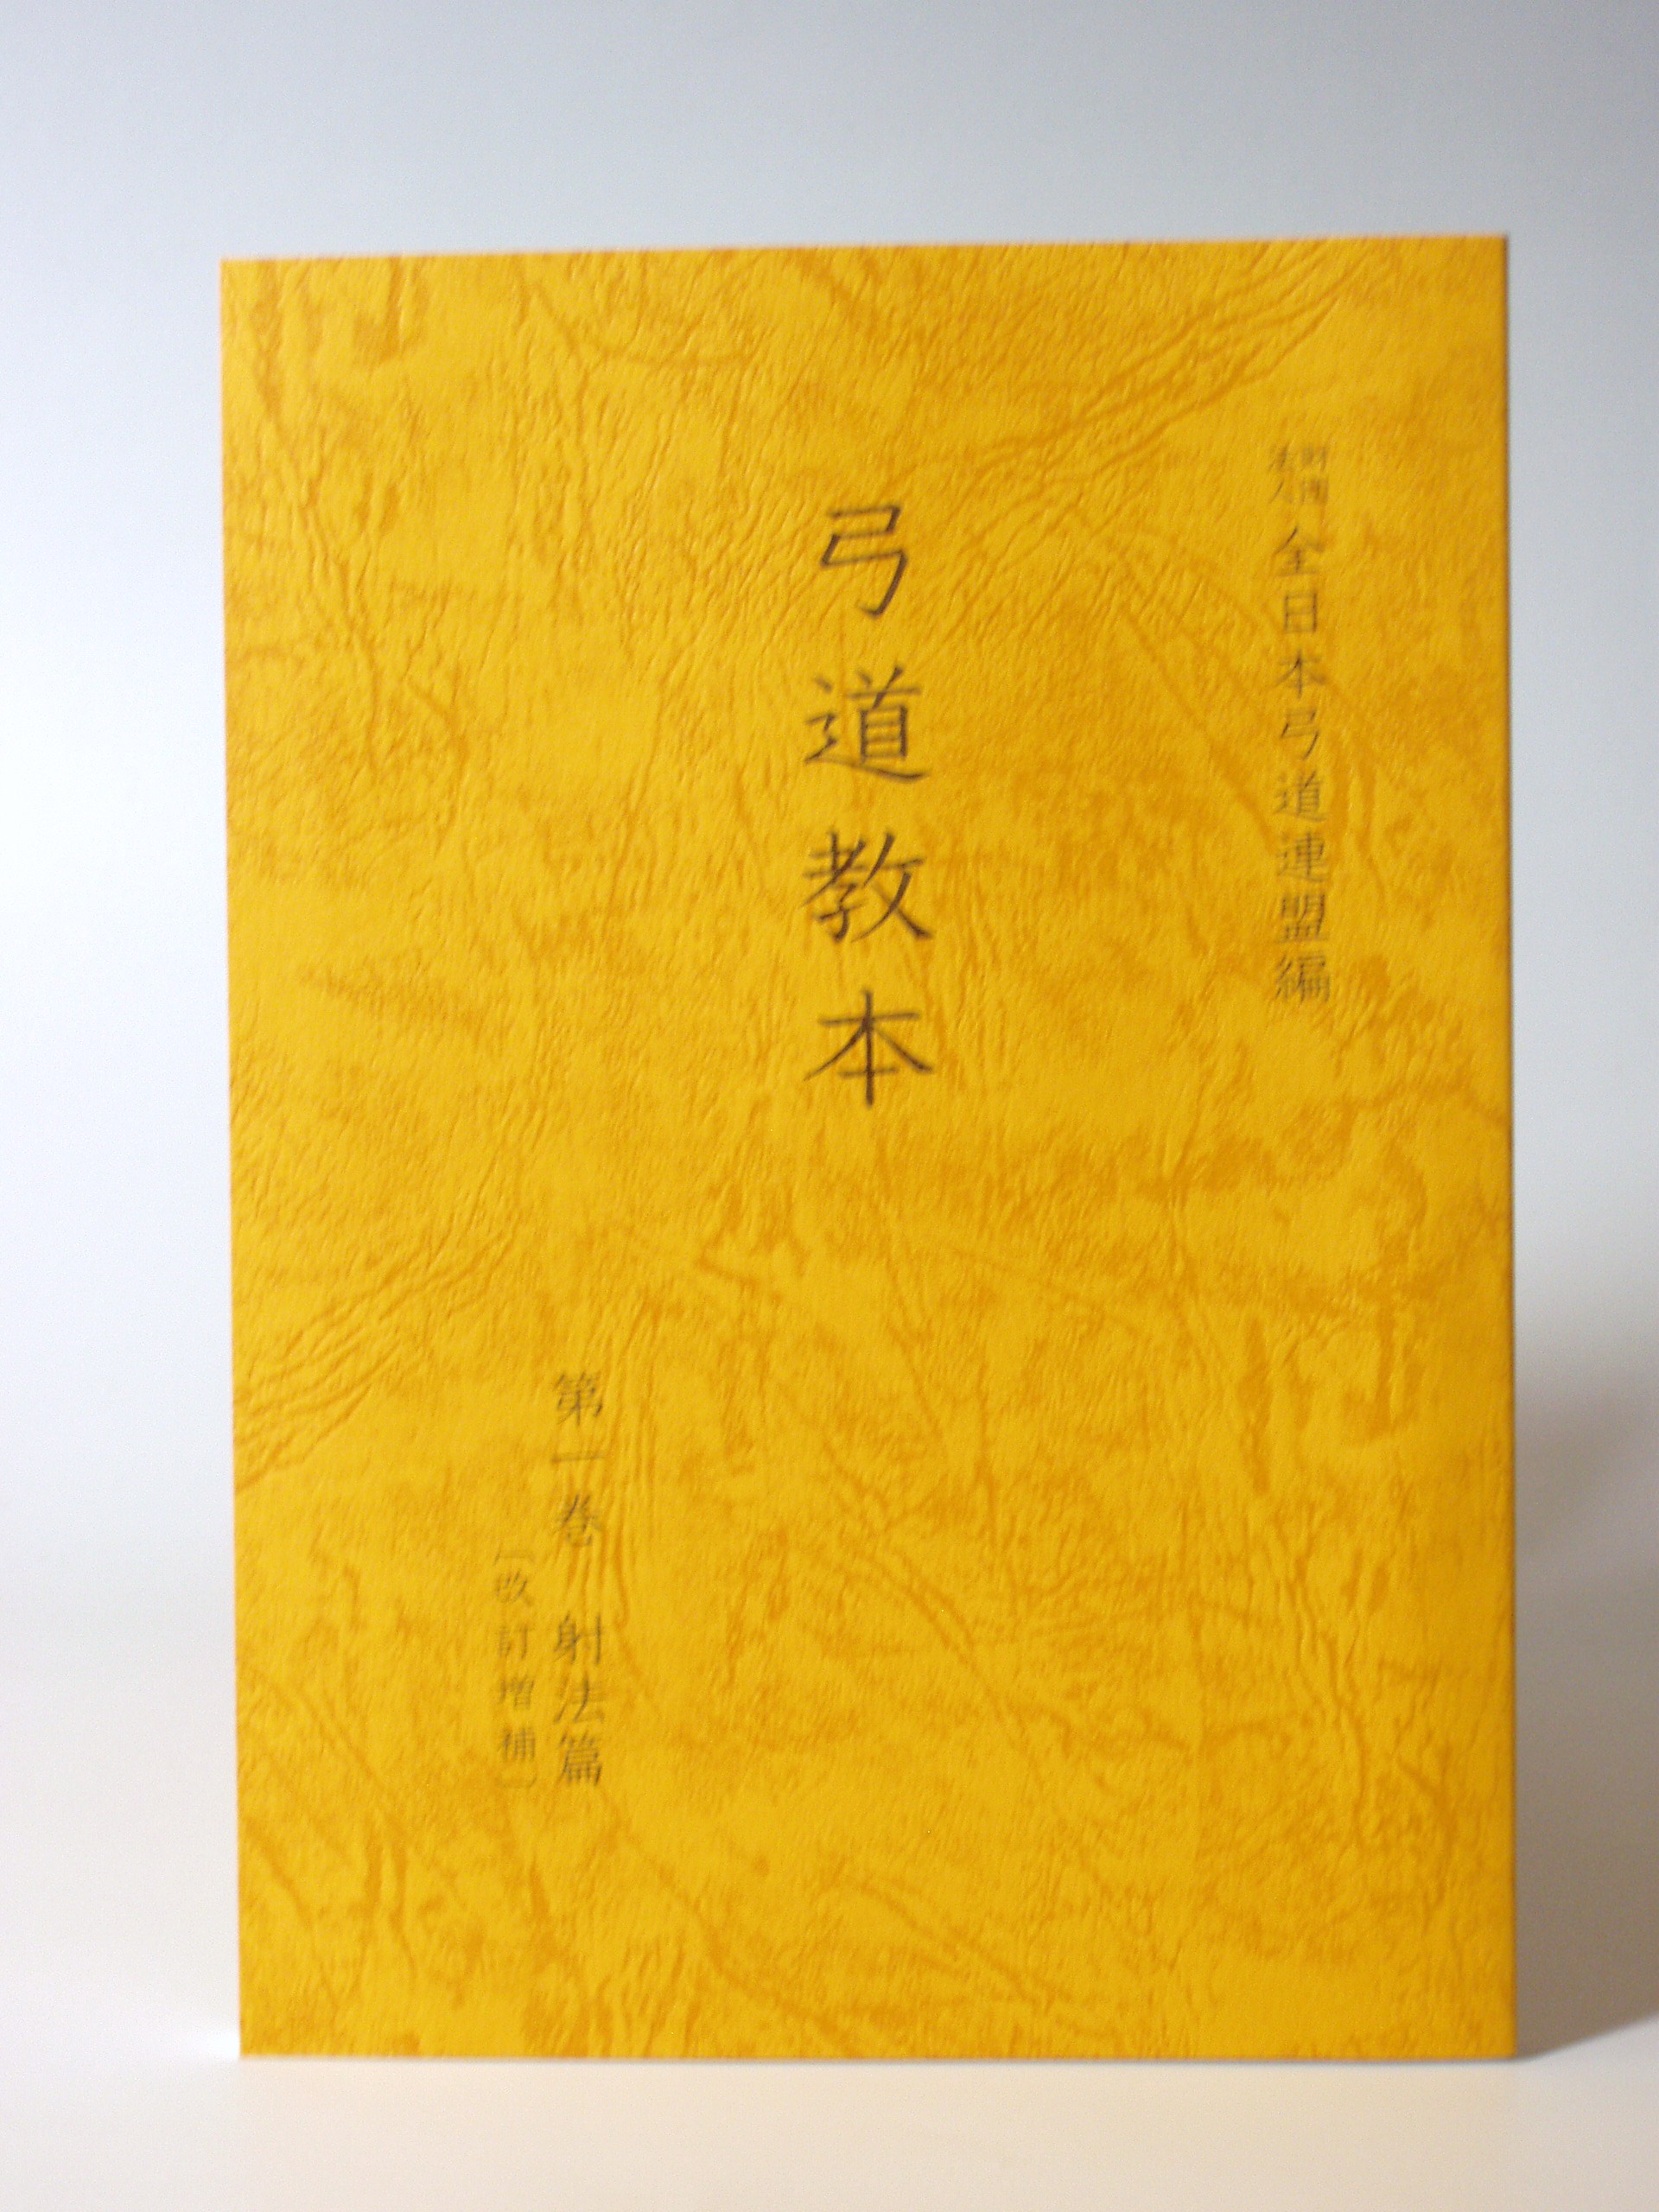 財団法人 全日本弓道連盟編
弓道教本
第一巻 射法篇
〔改訂増補〕